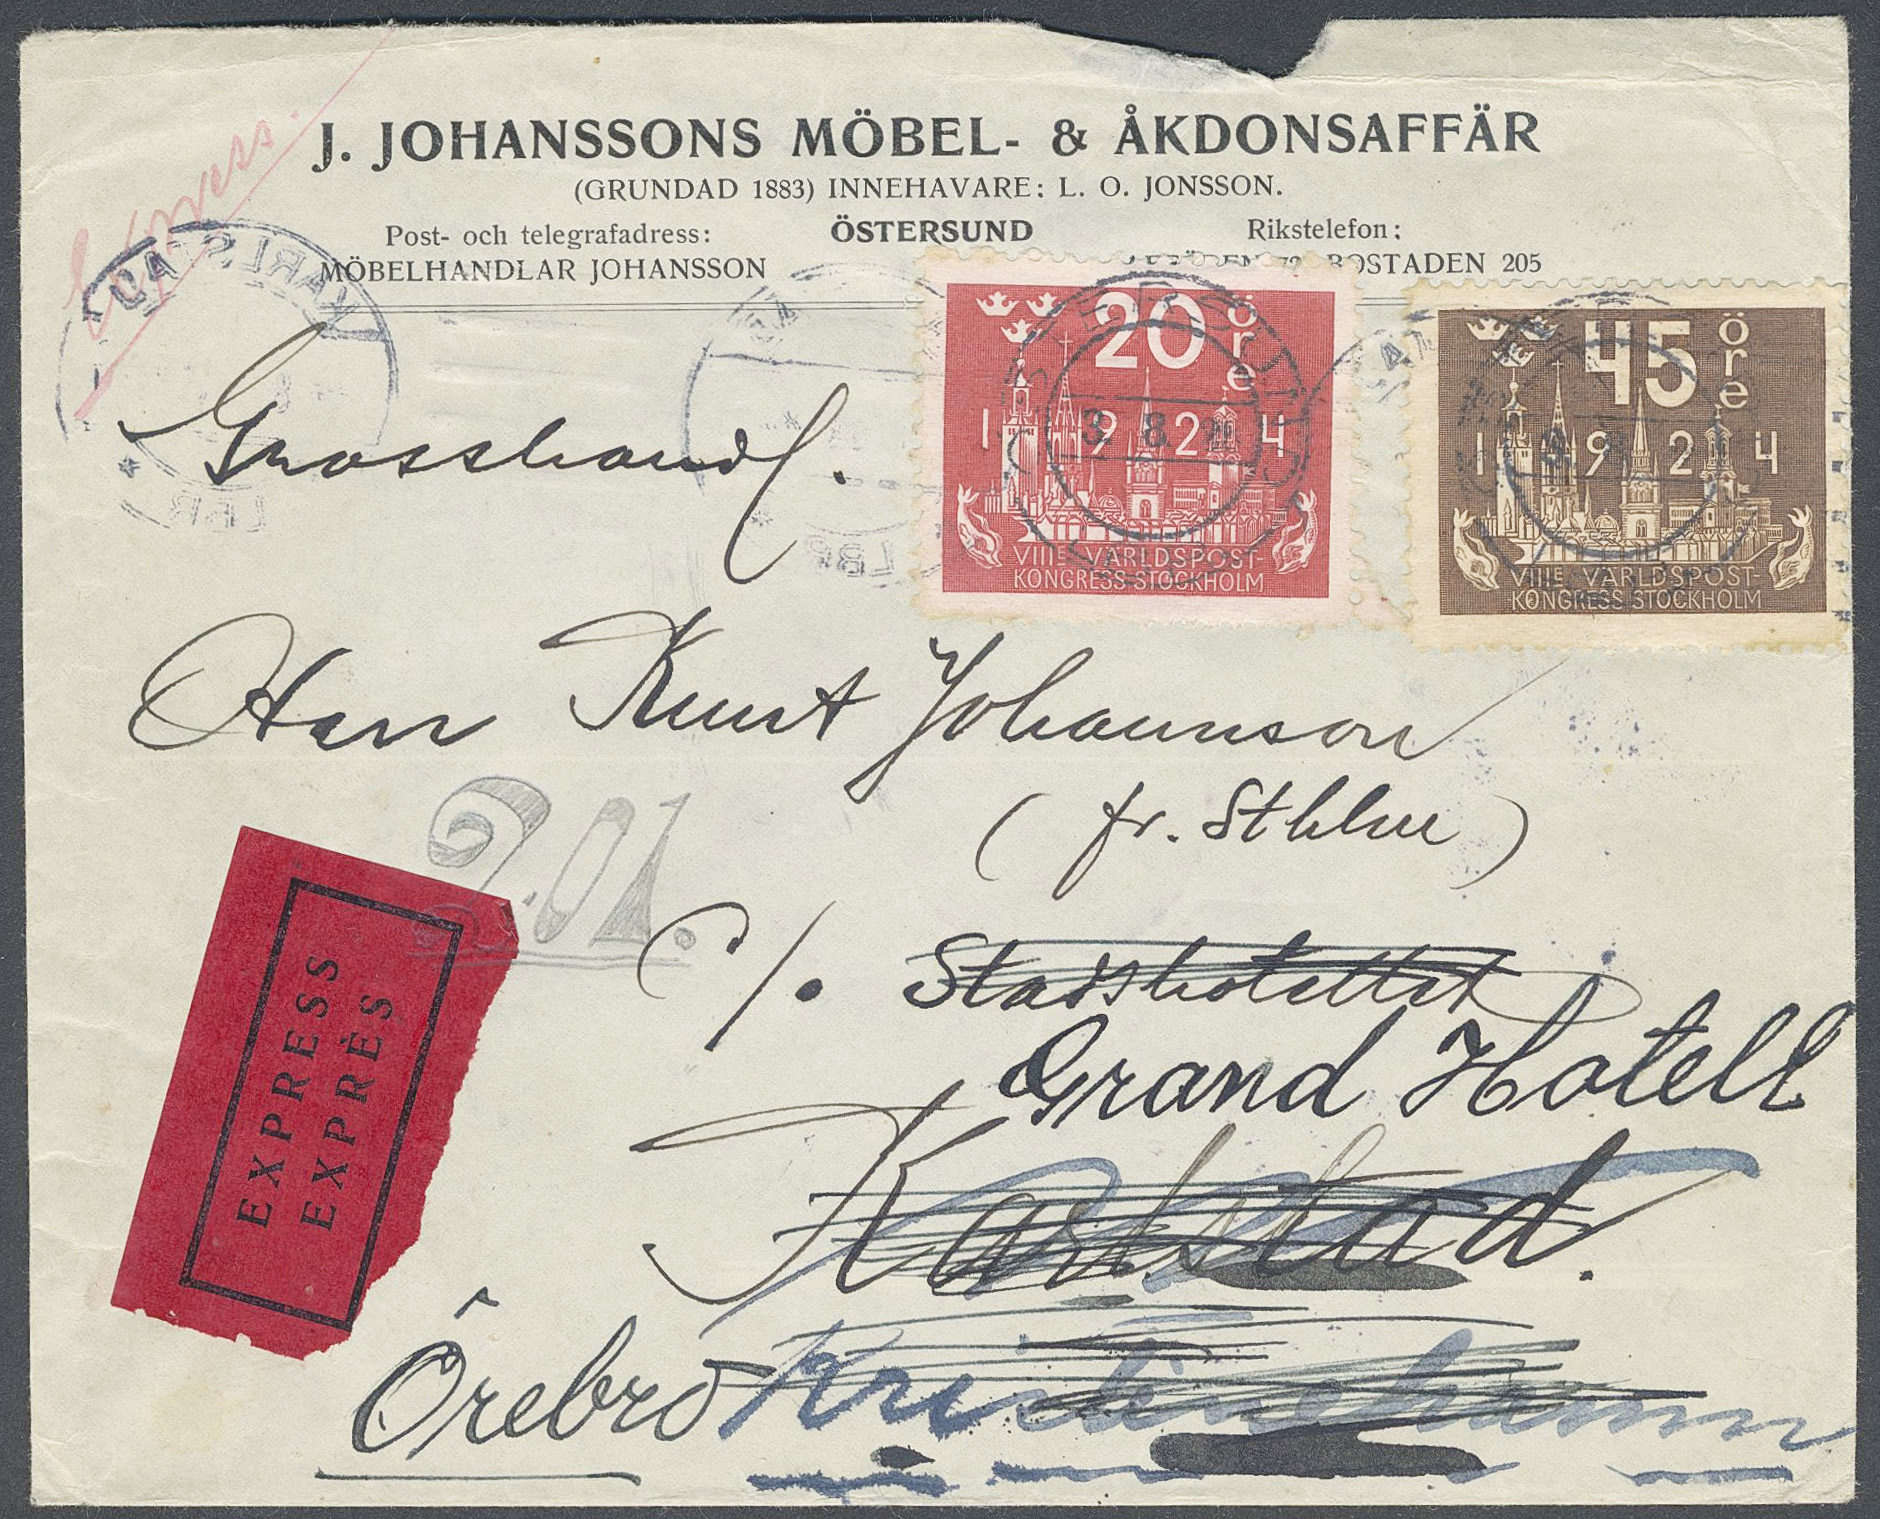 Express.
J. JOHANSSONS MÖBEL- & ÅKDONSAFFÄR
(GRUNDAD 1883) INNEHAVARE: L. O. JONSSON.
Post- och telegrafadress:
ÖSTERSUND
Rikstelefon:
MÖBELHANDLAR JOHANSSON
BOSTADEN 205
KARLSTAD
LBR
20 öre
1924
VIIIE VÄRLDSPOST-
KONGRESS STOCKHOLM
45 öre
1924
VIIIE VÄRLDSPOST-
KONGRESS STOCKHOLM
ÖSTERSUND
3. 8. 
Grosshandl.
Herr Knut Johannson
(fr. Sthlm)
2.01.
c/o Stadshotellet
Grand Hotell
Karlstad.
Örebro Kristinehamn
EXPRESS
EXPRÈS